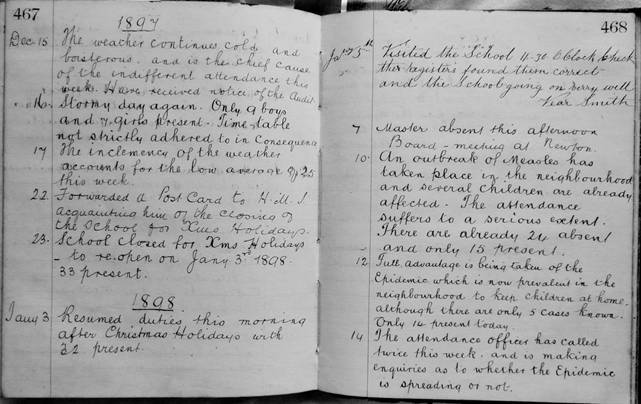 467
1897
Dec 15 The weather continues cold and
boisterous. and is the chief cause
of the indifferent attendance this
week. Have received notice of the Audit
16. Stormy day again. Only 9 boys
and 7 girls present. Time-table
not strictly adhered to in Consequence
17 The inclemency of the weather
accounts for the low average of 25
this week.
22. Forwarded a Post Card to H.M.I.
acquainting him of the closing of
the School for Xmas Holidays.
23. School closed for Xms Holidays
- to re-open on Jany 3rd 1898.
33 present.
1898
Jany 3. Resumed duties this morning
after Christmas Holidays with
32 present.
468
5th Visited the School 11-30 O'Clock
the registers found them correct
and the School going on very well
Smith
7 Master absent this afternoon
Board-meeting at Newton.
10. An outbreak of Measles has
taken place in the neighbourhood
and several children are already
affected. The attendance
suffers to a serious extent.
There are already 24 absent
- and only 15 present.
12 Full advantage is being taken of the
Epidemic which is now prevalent in the
neighbourhood to keep children at home.
although there are only 5 cases known.
Only 14 present today.
14 The attendance officer has called
twice this week. and is making
enquiries as to whether the Epidemic
is spreading or not.